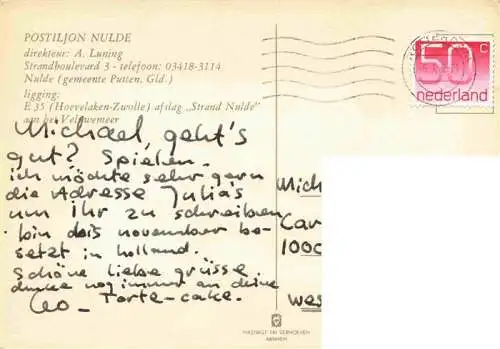 POSTILJON NULDE
direkteur: A. Luning
Strandboulevard 3 - telefoon: 03418-3114
Nulde (gemeente Putten, Gld.)
ligging:
E 35 (Hoevelaken-Zwolle) afslag „Strand Nulde"
aan het Veluwemeer
50 c
nederland
Michael, geht's
gut? Spielen.
ich möchte sehr gern
die Adresse Julia's
um ihr zu schreiben
bin bois november be-
setzt in holland.
Schöne liebe grüsse
denke nog immer an deine
Leo - Torte-cake.
Mich
Car
1000
wes